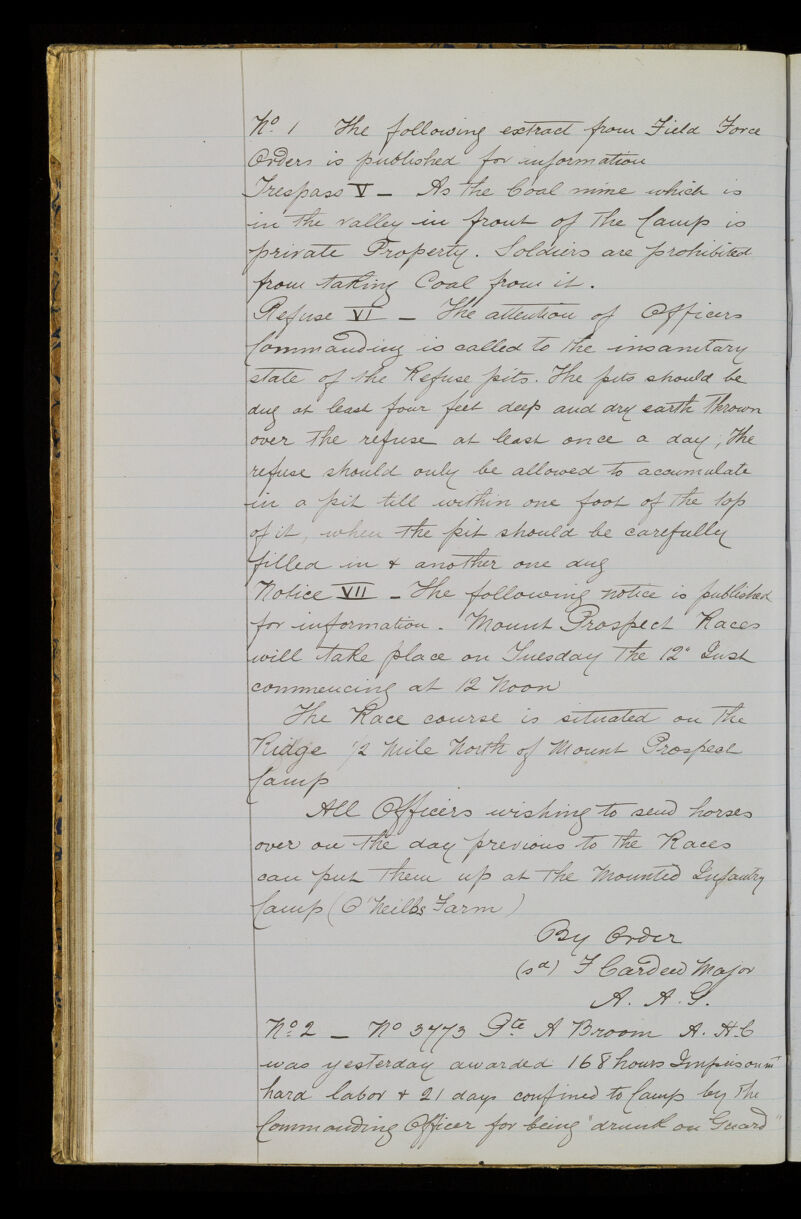 No. 1 The following extract from Field Force
Orders is published for information
Trespass V — As the Coal mine which is
in the valley in front of the Camp is
private Property. Soldiers are prohibited
from taking Coal from it.
Refuse VI — The attention of Officers
Commanding is called to the insanitary
state of the Refuse pits. The pits should be
dug at least four feet deep and dry earth thrown
over the refuse at least once a day, The
refuse should only be allowed to accumulate
in a pit till within one foot of the top
of it, when the pit should be carefully
filled in & another one dug
Notice VII — The following notice is published
for information. Mount Prospect Races
will take place on Tuesday the 12" Inst
commencing at 12 Noon
The Race course is situated on the
Ridge 1/2 Mile North of Mount Prospect
Camp
All Officers wishing to send horses
over on the day previous to the Races
can put them up at the Mounted Infantry
Camp (O'Neills Farm)
By Order
(sd) F Cardeed Major
A. A. G.
No. 2 — No 3773 Pte A Broom A. H. C
was yesterday awarded 168 hours Imprisonmt
hard labor & 21 days confined to Camp by the
Commanding Officer for being "drunk on Guard"